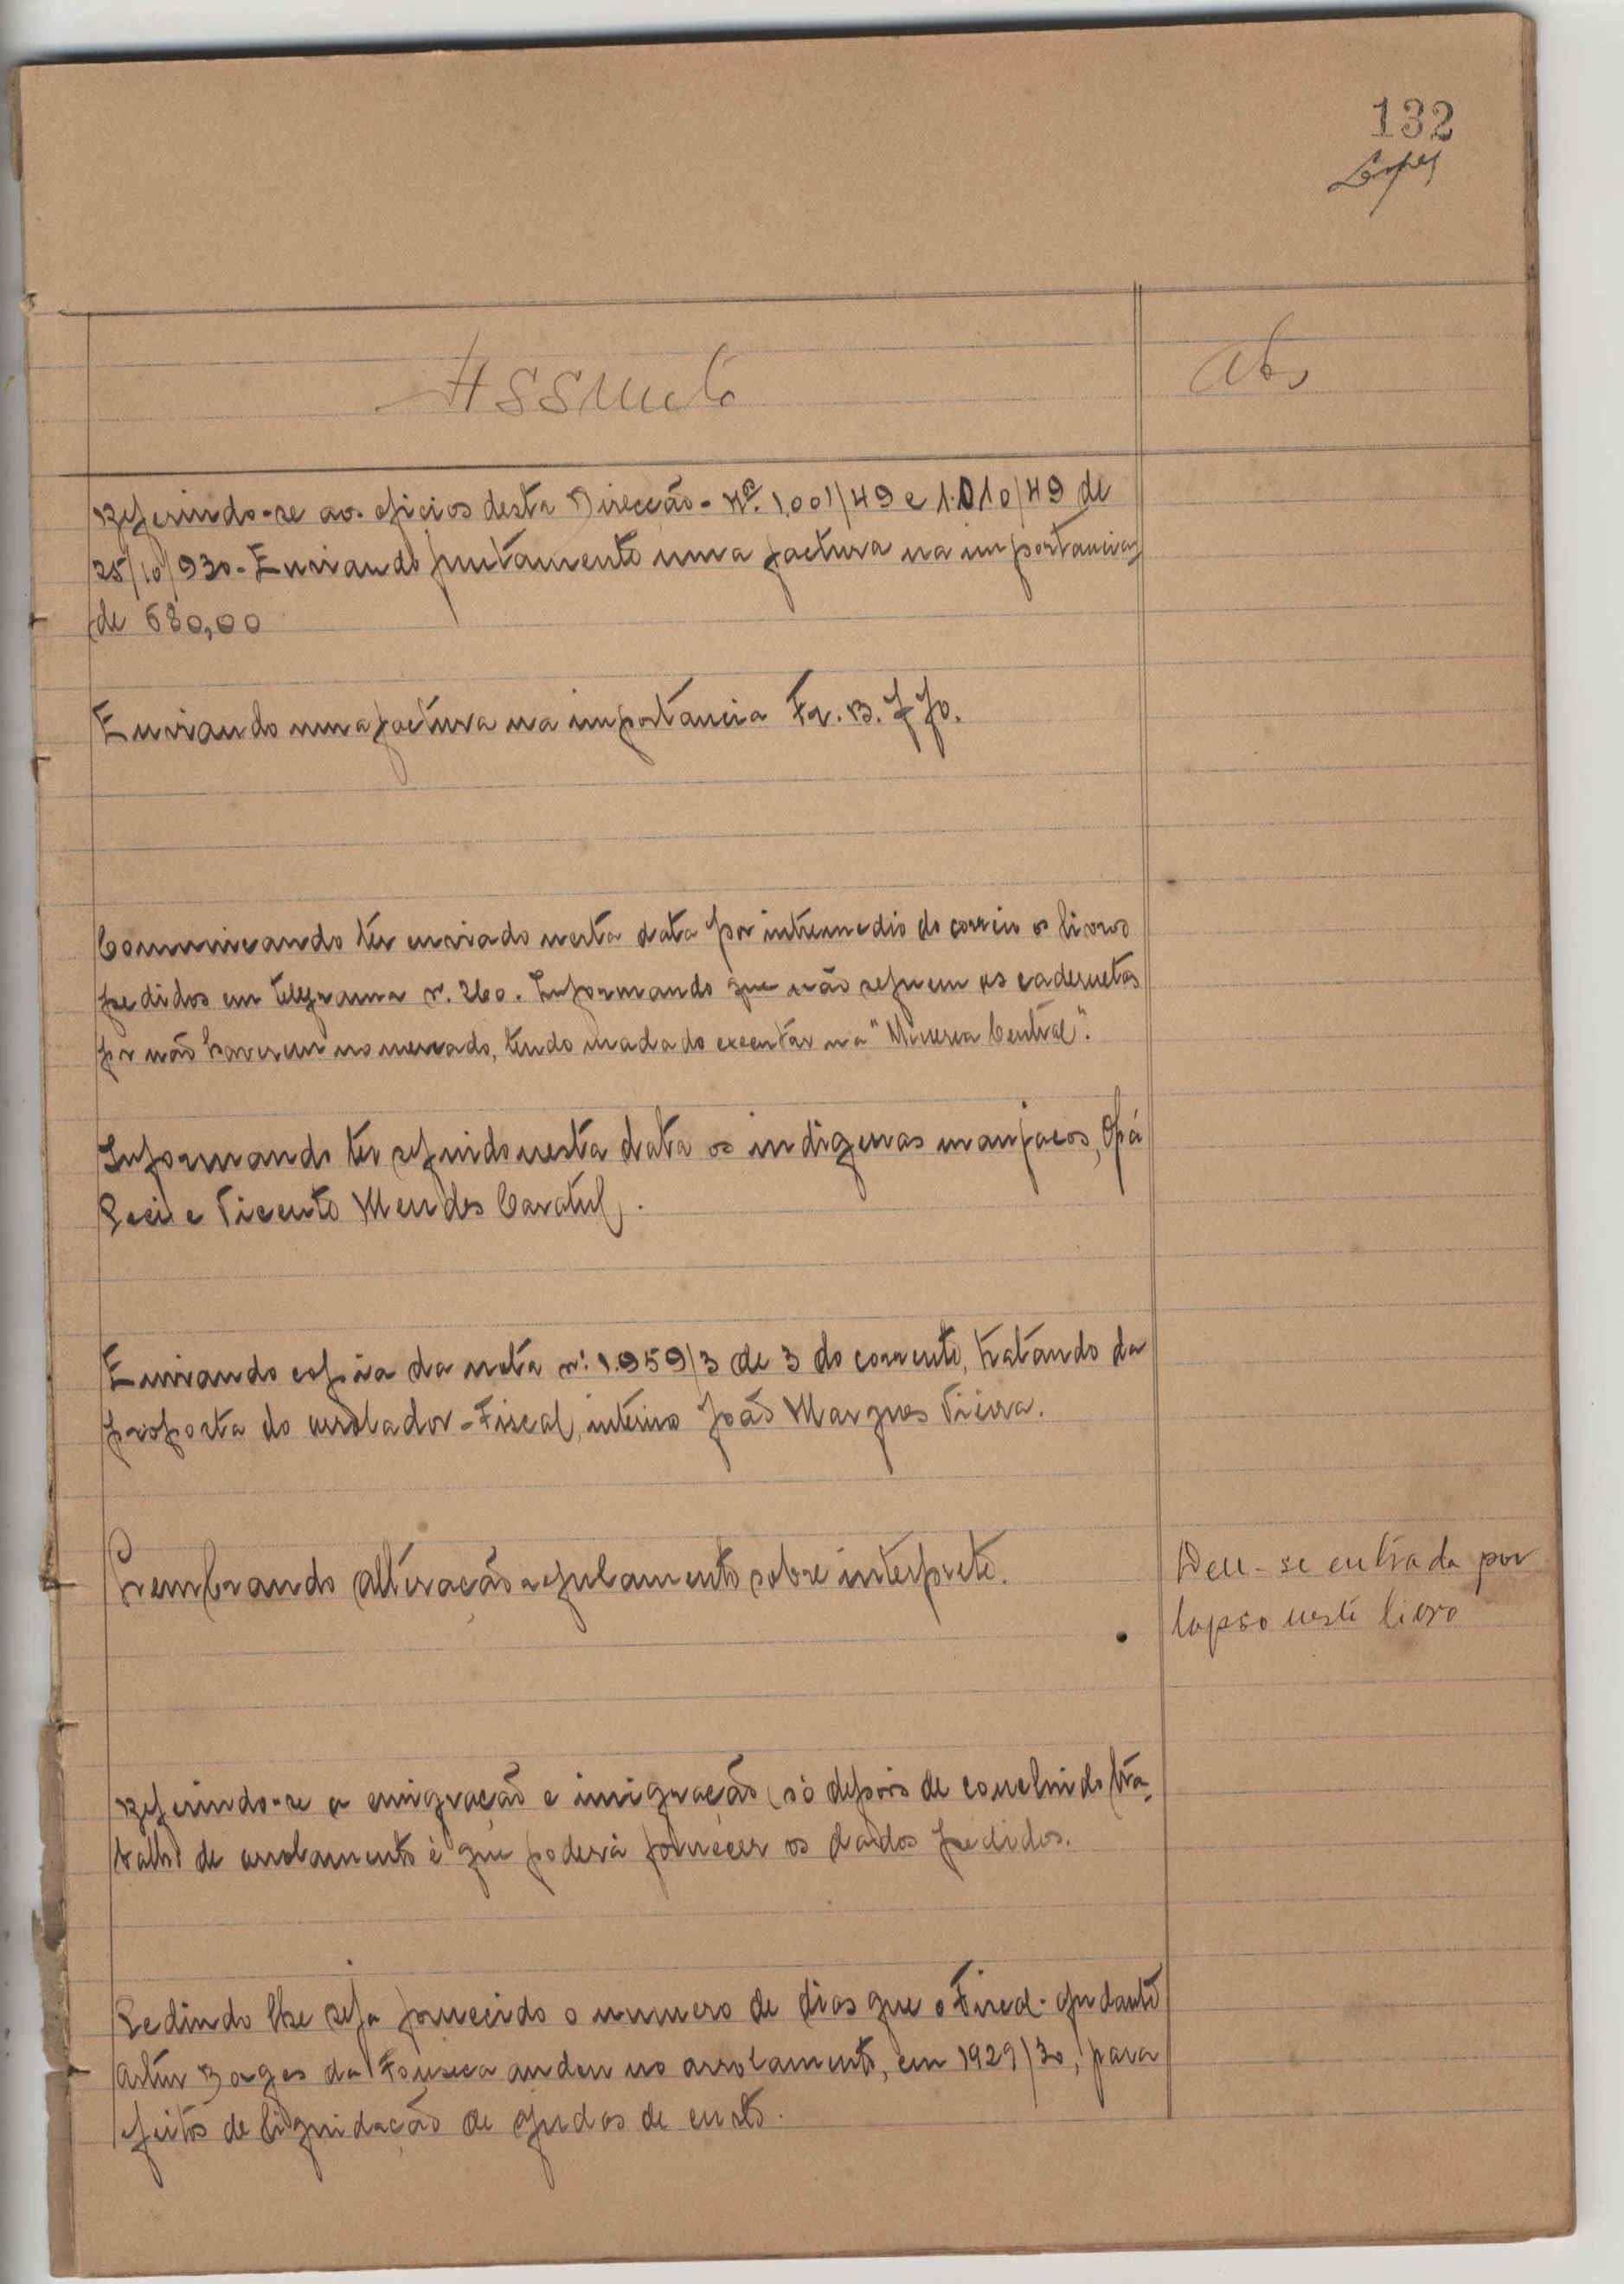 132
Lopes
Assunto
Obs
Referindo-se aos oficios desta Direcção - Nºs. 1.001/49 e 1.010/49 de
25/10/930 - Enviando juntamente uma factura na importancia
de 680,00
Enviando uma factura na importancia Fr. B. 770.
Communicando ter enviado nesta data por intermedio do correio os livros
pedidos em telegrama n. 260. Informando que não seguem as cadernetas
por não haverem no mercado, tendo madado executar na "Minerva Central".
Informando ter seguido nesta data os indigenas manjacos,
e Vicente Mendes
Enviando copia da nota nº 1.959/3 de 3 do corrente, tratando da
proposta do arrolador-Fiscal, interino João Marques Vieira.
Lembrando alteração regulamento sobre interprete.
Deu-se entrada por
lapso neste livro
Referindo-se a emigração e imigração só depois de concluido tra-
balho de arrolamento é que poderá fornecer os dados pedidos.
Pedindo lhe seja fornecido o numero de dias que o Fiscal-ajudante
Artur Borges da Fonseca andou no arrolamento, em 1929/30, para
feitos de liquidação de ajudas de custo.